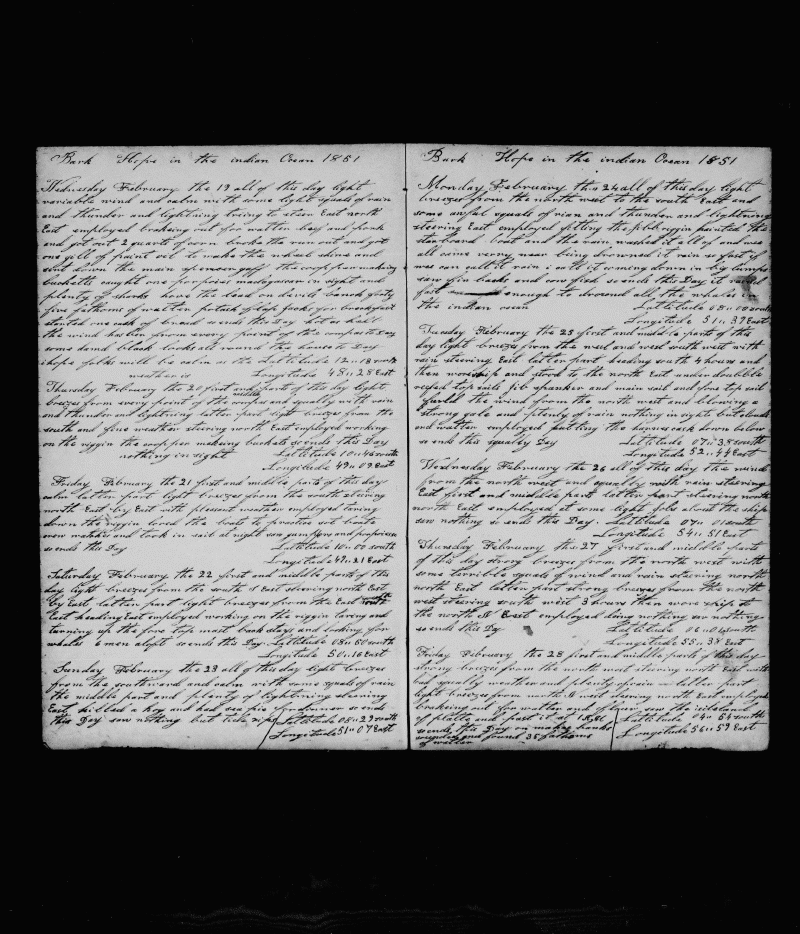 Bark Hope in the indian Ocean 1851
Wednesday February the 19 all of this day light
variable wind and calm with some light squals of rain
and thunder and lightning bring to steer East north
East employed braking out for watter beef and pork
and got out 2 quarts of corn broke the run out and got
one gill of paint oil to make the wheel shine and
sent down the main spencer gaff the cooper making
bucketts caught one porpoise madagascar in sight and
plenty of sharks hove the lead on devils banck forty
five fathoms of watter for breackfast
started one cask of bread so ends this Day hot as hell
the wind has ben from every point of the compass to Day
some damd black looks sky round the house to Day
folks with be calm as the Lattitude 12 .. 18 south
weather is Longitude 48 .. 28 East
Thursday February the 20 first and middle parts of this day light
breezes from every point of the compass and squally with rain
and thunder and lightning latter part light breezes from the
south and fine weather steering north East employed working
on the riggin the coopper making buckets so ends this Day
nothing in sight Lattitude 10 .. 46 south
Longitude 49 .. 09 East
Friday February the 21 first and middle parts of this day
calm latter part light breezes from the south steering
north East by East with plesent weather employed taring
down the riggin lored the boats to practise set boats
crew watches and took in sail at night saw and porpoises
so ends this Day Lattitude 10 .. 00 south
Longitude 49 .. 21 East
Saturday February the 22 first and middle parts of this
day light breezes from the south & East steering north East
by East latter part light breezes from the East south
East heading East employed working on the riggin taring and
turning up the fore top mast back stays and looking for
whales 6 men aloft so ends this Day Lattitude 08 .. 50 south
Longitude 50 .. 16 East
Sunday February the 23 all of this day light breezes
from the southward and calm with some squals of rain
the middle part and plenty of lightning steering
East killed a hog and had sea pie for dinner so ends
this Day saw nothing but tide rips Lattitude 08 .. 29 south
Longitude 51 .. 07 East
Bark Hope in the indian Ocean 1851
Monday February the 24 all of this day light
breezes from the north west to the south East and
some awful squals of rian and thunder and lightning
steering East employed fitting the jibb riggin painted the
starboard boat and the rain washed it all of and wee
all came verry near being drowned it rain so fast if
wee can call it rain i call it coming down in big lumps
saw fin backs and cow fish so ends this Day it rained
fast enough to drowend all the whales in
the indian ocean Lattitude 08 .. 00 south
Longitude 51 .. 37 East
Tuesday February the 25 first and middle parts of this
day light breezes from the west and west south west with
rain steering East latter part heading south 4 hours and
then wore ship and stood to the north East under doubble
reefed top sails jib spanker and main sail and fore top sail
furld the wind from the north west and blowing a
strong gale and plenty of rain nothing in sight but clouds
and watter employed putting the harness cack down below
so ends this squaley Day Lattitude 07 .. 38 south
Longitude 52 .. 44 East
Wednesday February the 26 all of the day the wind
from the north west and squally with rain steering
East first and middle part latter part steering north
north East employed at some light jobs about the ship
saw nothing so ends this Day. Lattitude 07 .. 01 south
Longitude 54 .. 51 East
Thursday February the 27 first and middle parts
of this day strong breezes from the north west with
some terrible squals of wind and rain steering north
north East latter part strong breezes from the north
west steering south west 3 hours than wore ship to
the north & East employed doing nothing saw nothing
so ends this Day Lattitude 06 .. 06 south
Longitude 55 .. 38 East
Friday February the 28 first and middle parts of this day
strong breezes from the north west steering north East with
bad squally weather and plenty of rain latter part
light breezes from north & west steering north East employed
breaking out for watter and flour saw the iceland
of platte and past it at Lattitude 04 .. 54 south
so ends this Day on mahey banks Longitude 56 .. 59 East
sounded and found 35 fathoms
of watter